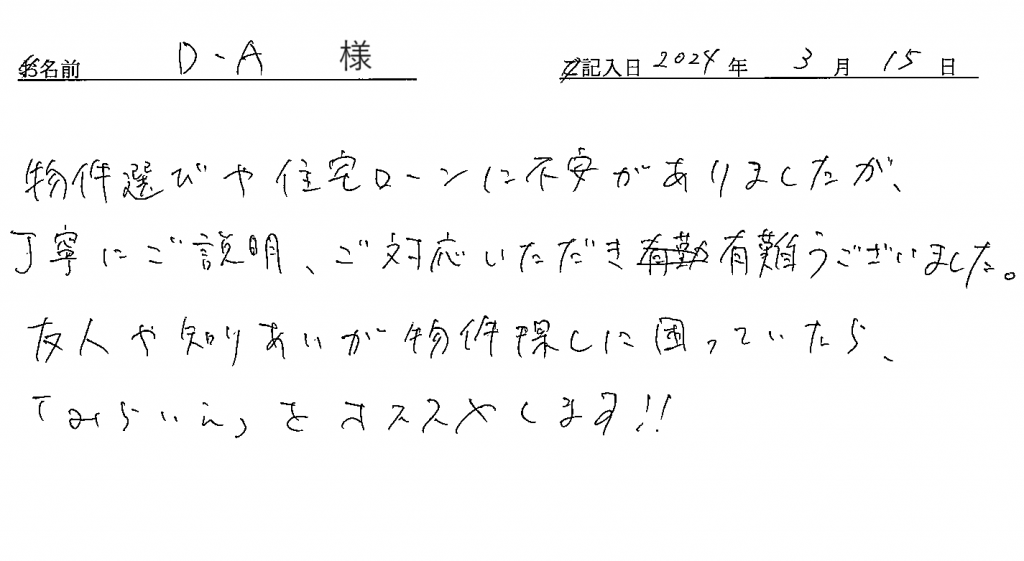 お名前 D・A 様 ご記入日 2024 年 3 月 15 日
物件選びや住宅ローンに不安がありましたが、
丁寧にご説明、ご対応いただき有難うございました。
友人や知りあいが物件探しに困っていたら、
「みらいえ」をオススメします!!